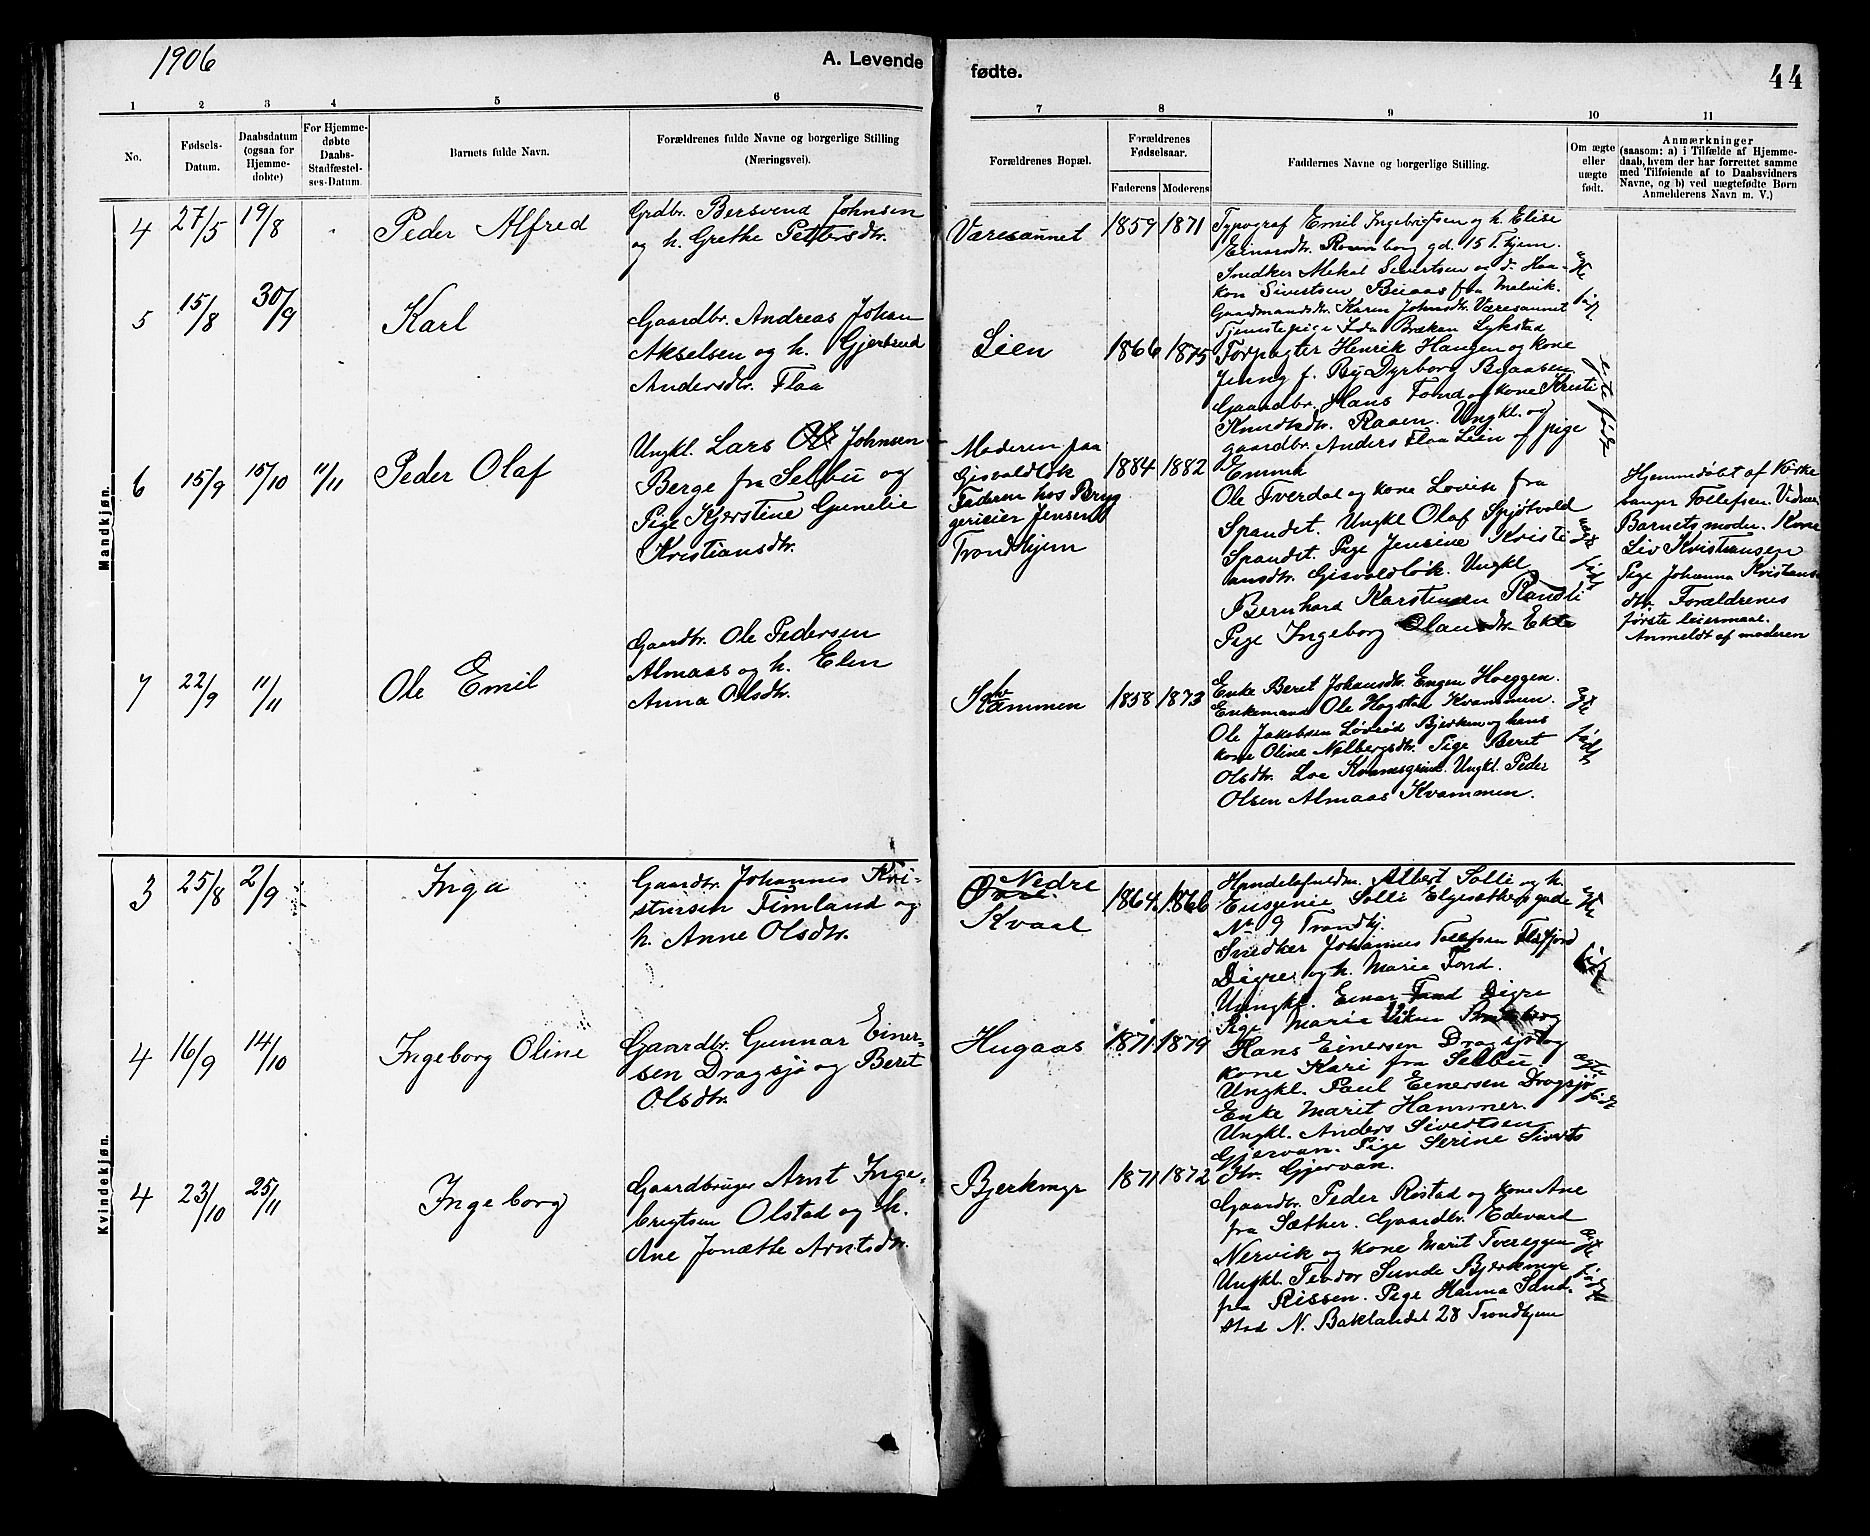 1906
A. Levende fødte.
44
1 2 3 4 5 6 7 8 9 10 11
No.
Fødsels-
Datum.
Daabsdatum
(ogsaa for
Hjemme-
døbte)
For Hjemme-
døbte
Daabs-
Stadfæstel-
ses-Datum.
Barnets fulde Navn.
Forældrenes fulde Navne og borgerlige Stilling
(Næringsvei).
Forældrenes Bopæl.
Forældrenes
Fødselsaar.
Faderens Moderens
Faddernes Navne og borgerlige Stilling.
Om ægte
eller
uægte
født.
Anmærkninger
(saasom: a) i Tilfælde af Hjemme-
daab, hvem der har forrettet samme
med Tilføiende af to Daabsvidners
Navne, og b) ved uægtefødte Børn
Anmelderens Navn m. V.)
Mandkjøn.
4 27/5 19/8
Peder Alfred
Grdbr. Bersvend Johnsen
og h. Grethe Pettersdtr.
Væresaunet
1859 1871
Typograf Emil Ingebrigtsen og h. Elise
Einarsdtr. Rosenborg gd. 15 T.hjem.
Snedker Mekal Sivertsen og d. Haa-
kon Sivertsen Beiaas fra Malvik.
Gaardmandsdtr. Karen Johnsdtr. Væresaunet
Tjenestepige Ida Bræken Lykstad
ægte
født.
5 15/8 30/9
Karl
Gaardbr. Andreas Johan
Akselsen og h. Gjertrud
Andersdtr. Flaa
Lien
1866 1875
Forpagter Henrik Haugen og kone
Jenny f. By Dyrborg Beaasen
Gaardbr. Hans Fond og kone Kristi
Knudsdtr. Raaen. Ungkl. og
gaardbr. Anders Flaa Lien og pige
Emma
ægte født
6 15/9 15/10 11/11
Peder Olaf
Ungkl. Lars Ole Johnsen
Berge fra Selbu og
Pige Kjerstine Gunelie
Kristiansdtr.
Moderen paa
Gisvaldløk
Faderen hos Bryg
gerieier Jensen
Trondhjem
1884 1882
Ole Tverdal og kone Lovise fra
Spandet. Ungkl Olaf Spjøtvold
Spandet. Pige Jensine Kristi
ansdtr. Gisvaldløk. Ungkl
Bernhard Karstensen Ranoli
Pige Ingeborg Olausdtr. Ekle
uægte
født
Hjemmedøbt af Kirke
sanger Tollefsen. Vidner
Barnets moder. Kone
Liv Kristiansen
Pige Johanna Kristians
dtr. Forældrenes
første leiermaal.
Anmeldt af moderen
7 22/9 11/11
Ole Emil
Gaardbr. Ole Pedersen
Almaas og h. Elen
Anna Olsdtr.
Kvammen
1858 1873
Enke Beret Johansdtr. Engen Hoeggen.
Enkemand Ole Hogstad Kvammen.
Ole Jakobsen Løvrød Bjerken og hans
kone Oline Nelbergsdtr. Pige Beret
Olsdtr. Loe Kvamsgrind. Ungkl. Peder
Olsen Almaas Kvammen.
ægte
født
Kvindekjøn.
3 25/8 2/9
Inga
Gaardbr. Johannes Kri-
stensen Fimland og
h. Anne Olsdtr.
Nedre
Øvre
Kvaal
1864 1866
Handelsfuldm. Albert Solli og h.
Eugenie Solli Elgesæthergade
No 9 Trondhj.
Snedker Johannes Tollefsen Flafjord
Digre og h. Marie Fond.
Ungkl. Einar Fand Digre
Pige Marie Viken
ægte
født
4 16/9 14/10
Ingeborg Oline
Gaardbr. Gunnar Einer-
sen Dragsjø og Beret
Olsdtr.
Hugaas
1871 1879
Hans Einersen Dragsjø og
kone Kari fra Selbu.
Ungkl. Paul Einersen Dragsjø
Enke Marit Hammer.
Ungkl. Anders Sivertsen
Gjervan. Pige Serine Siverts
dtr. Gjervan.
ægte
født
4 23/10 25/11
Ingeborg
Gaardbruger Arnt Inge-
brigtsen Olstad og h.
Ane Jonætte Arntsdtr.
Bjerkmyr
1871 1872
Gaardbr. Peder Ristad og kone Ane
fra Sæther. Gaardbr. Edevard
Nervik og kone Marit Tvereggen
Ungkl. Teodor Sunde Bjerkmyr
fra Rissen. Pige Hanna Sand-
stad N. Baklandet 28 Trondhjem
ægte
født